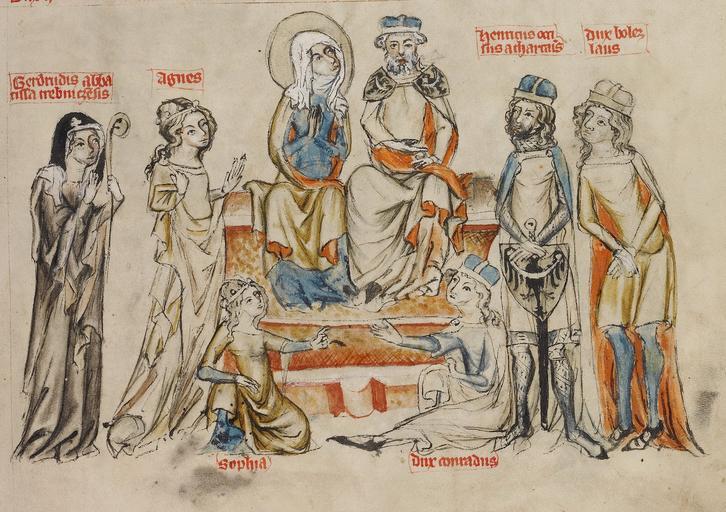 Gerdrudis abba
tissa trebnicensis
Agnes
Henricus occi
sus a thartaris
dux bolez
laus
Sophia
dux conradus